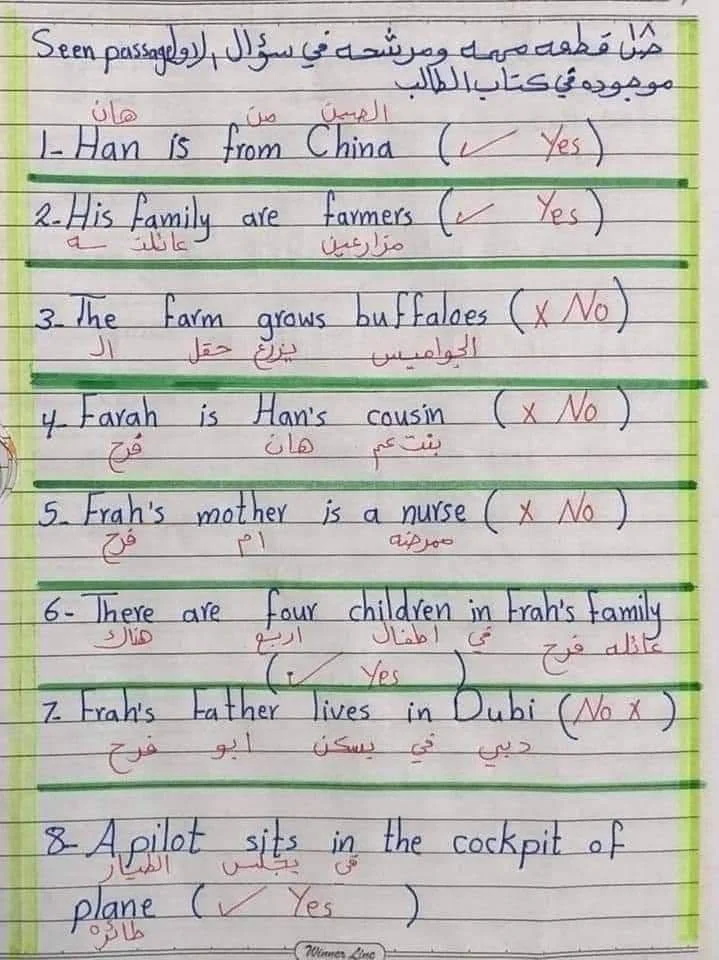 حل قطعه مهمه ومرشحه في سؤال الاول Seen passage
موجوده في كتاب الطالب
هان من الصين
1- Han is from China (✓ Yes)
2- His family are farmers (✓ Yes)
عائلت سه مزارعين
3- The farm grows buffaloes (x No)
الـ حقل يزرع الجواميس
4- Farah is Han's cousin (x No)
فرح هان بنت عم
5- Frah's mother is a nurse (x No)
فرح ام ممرضه
6- There are four children in Frah's family
هناك اربع اطفال في عائله فرح
(✓ Yes)
7- Frah's Father lives in Dubi (No x)
فرح ابو يسكن في دبي
8- A pilot sits in the cockpit of
الطيار يجلس في
plane (✓ Yes)
طائره
Winner Line